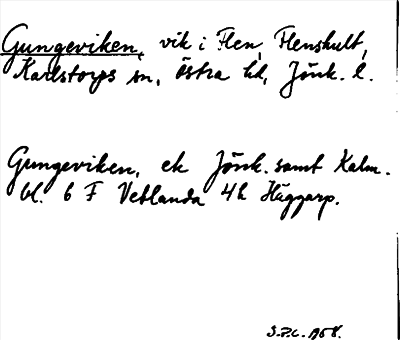 Gungeviken, vik i Flen, Flenshult,
Karlstorps sn, Östra hd, Jönk. l.
Gungeviken, ek Jönk. samt Kalm.
bl. 6 F Vetlanda 4h Häggarp.
S.P.C. 1958.